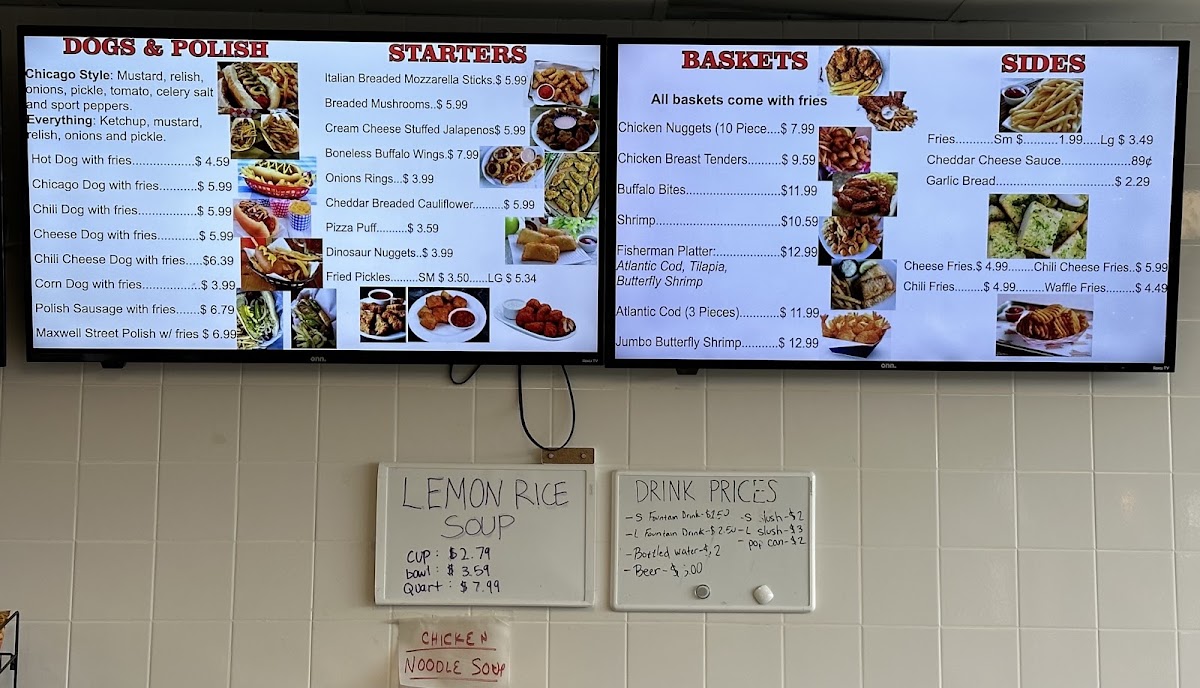 DOGS & POLISH
Chicago Style: Mustard, relish,
onions, pickle, tomato, celery salt
and sport peppers.
Everything: Ketchup, mustard,
relish, onions and pickle.
Hot Dog with fries....................$ 4.59
Chicago Dog with fries...........$ 5.99
Chili Dog with fries.................$ 5.99
Cheese Dog with fries............$ 5.99
Chili Cheese Dog with fries.....$6.39
Corn Dog with fries.................$ 3.99
Polish Sausage with fries.......$ 6.79
Maxwell Street Polish w/ fries $ 6.99
STARTERS
Italian Breaded Mozzarella Sticks.$ 5.99
Breaded Mushrooms..$ 5.99
Cream Cheese Stuffed Jalapenos$ 5.99
Boneless Buffalo Wings.$ 7.99
Onions Rings...$ 3.99
Cheddar Breaded Cauliflower.........$ 5.99
Pizza Puff.........$ 3.59
Dinosaur Nuggets..$ 3.99
Fried Pickles........SM $ 3.50.....LG $ 5.34
onn.
Roku TV
BASKETS
All baskets come with fries
Chicken Nuggets (10 Piece....$ 7.99
Chicken Breast Tenders..........$ 9.59
Buffalo Bites............................$11.99
Shrimp.....................................$10.59
Fisherman Platter:...................$12.99
Atlantic Cod, Tilapia,
Butterfly Shrimp
Atlantic Cod (3 Pieces)............$ 11.99
Jumbo Butterfly Shrimp...........$ 12.99
SIDES
Fries...........Sm $..........1.99.....Lg $ 3.49
Cheddar Cheese Sauce....................89¢
Garlic Bread......................................$ 2.29
Cheese Fries.$ 4.99........Chili Cheese Fries..$ 5.99
Chili Fries.........$ 4.99.........Waffle Fries.........$ 4.49
onn.
Roku TV
LEMON RICE
SOUP
CUP: $2.79
bowl: $ 3.59
Quart: $ 7.99
DRINK PRICES
- S Fountain Drink-$1.50
- L Fountain Drink-$2.50
- Bottled water-$2
- Beer-$
- S slush-$2
- L slush-$3
- pop can-$2
CHICKEN
NOODLE SOUP